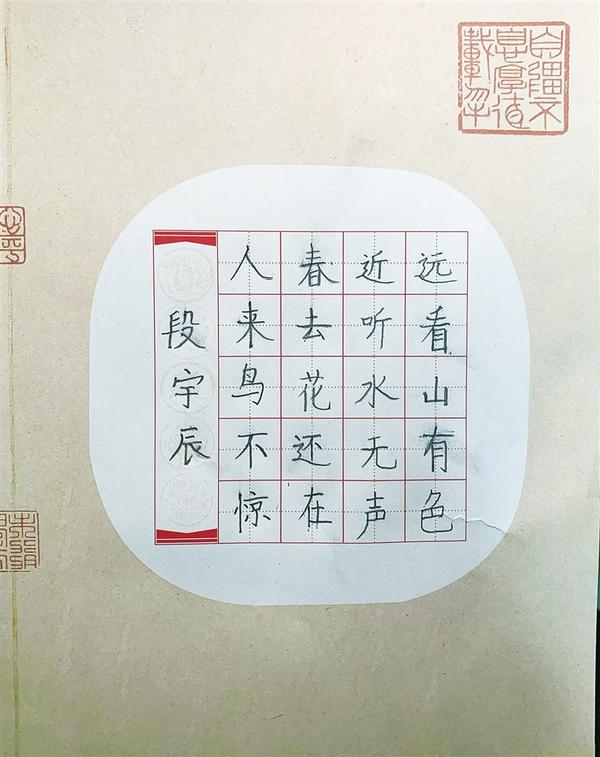 远看山有色
近听水无声
春去花还在
人来鸟不惊
段宇辰